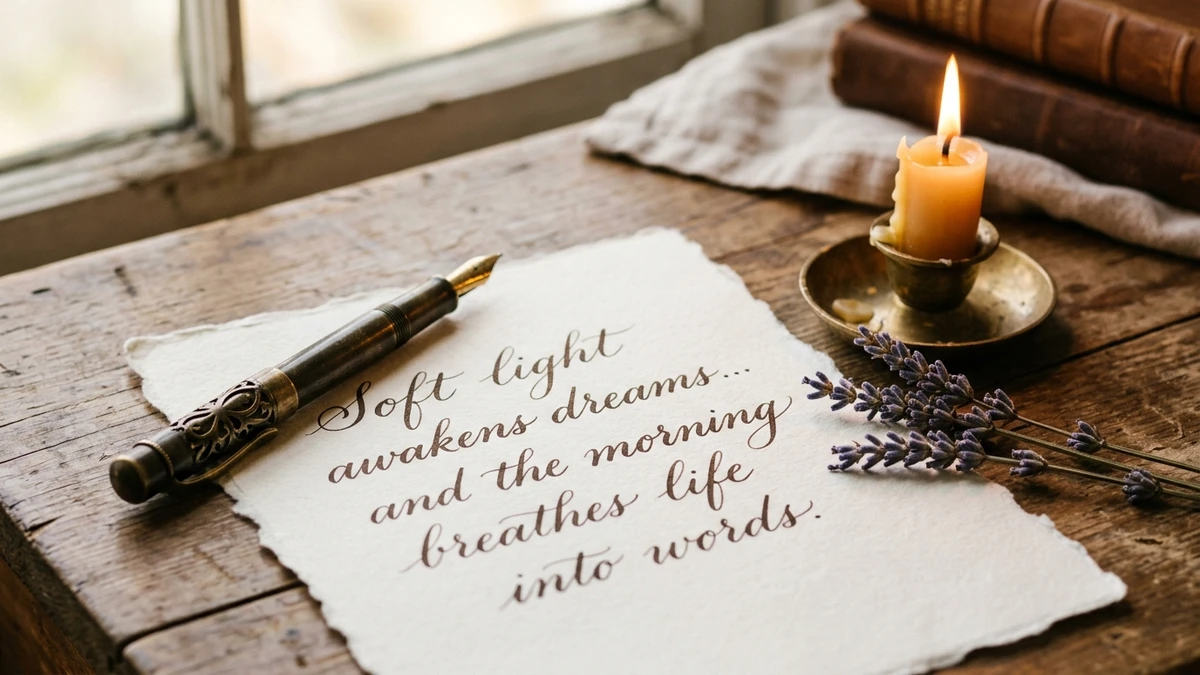 Soft light
awakens dreams...
and the morning
breathes life
into words.